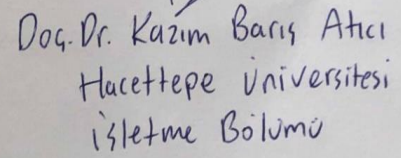 Doç. Dr. Kazım Barış Atıcı
Hacettepe Üniversitesi
işletme Bölümü